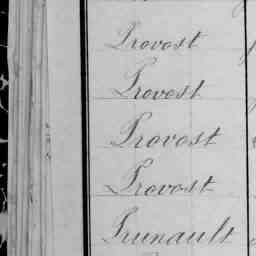 Provost
Provost
Provost
Provost
Prunault